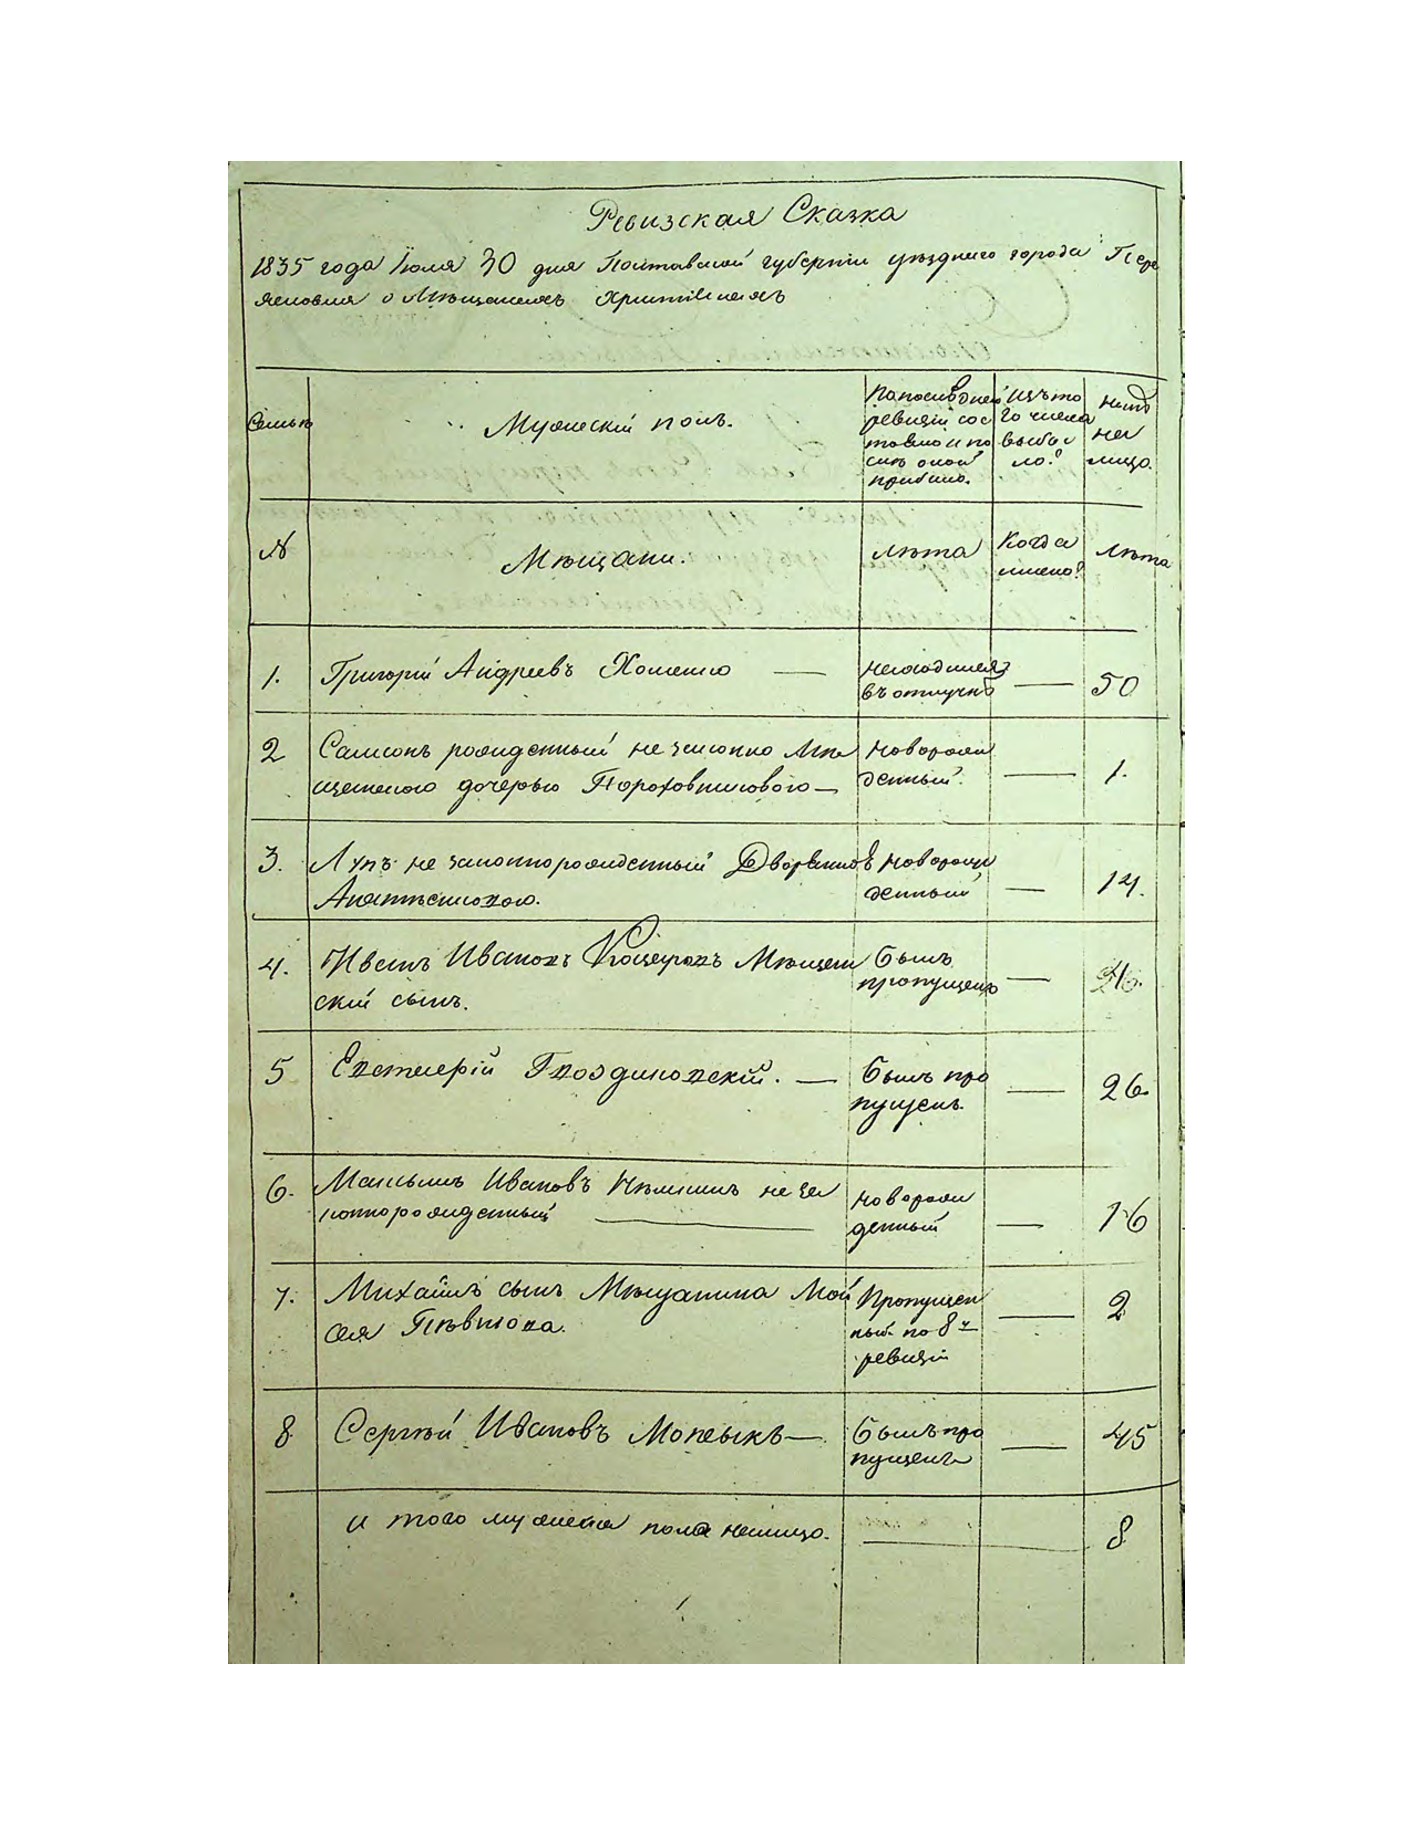 Ревизская Сказка
1835 года Июля 30 дня Полтавской губернии уезднаго города Пере
яславля о Мѣщанахъ христіанахъ
Семьи
Мужескій полъ.
По последней
ревизіи сос
тояло и по
слѣ оной
прибыло.
Изъ то
го числа
выбы
ло?
Нынѣ
на
лицо.
№
Мѣщани.
лѣта
Когда
имено?
Лѣта
1. Григорій Андреевъ Хоменко — находился
въ отлучкѣ — 50
2 Самсонъ рожденный не законно Мѣ
щанскою дочерью Пороховниковою —
Новорож
денный. — 1.
3. Лупъ не законнорожденный Дворянкою
Новорож
денный — 14.
4. Иванъ Ивановъ Мѣщан
скій сынъ.
былъ
пропущенъ —
5 Гвоздиковскій. — былъ про
пущенъ. — 26.
6. Максимъ Ивановъ не за
коннорожденный
Новорож
денный — 16
7. Михайлъ сынъ Мѣщанина Мой
сея
Пропущен
ный по 8й
ревизіи — 2
8 Сергѣй Ивановъ — былъ про
пущенъ — 45
и того мужеска пола налицо. 8